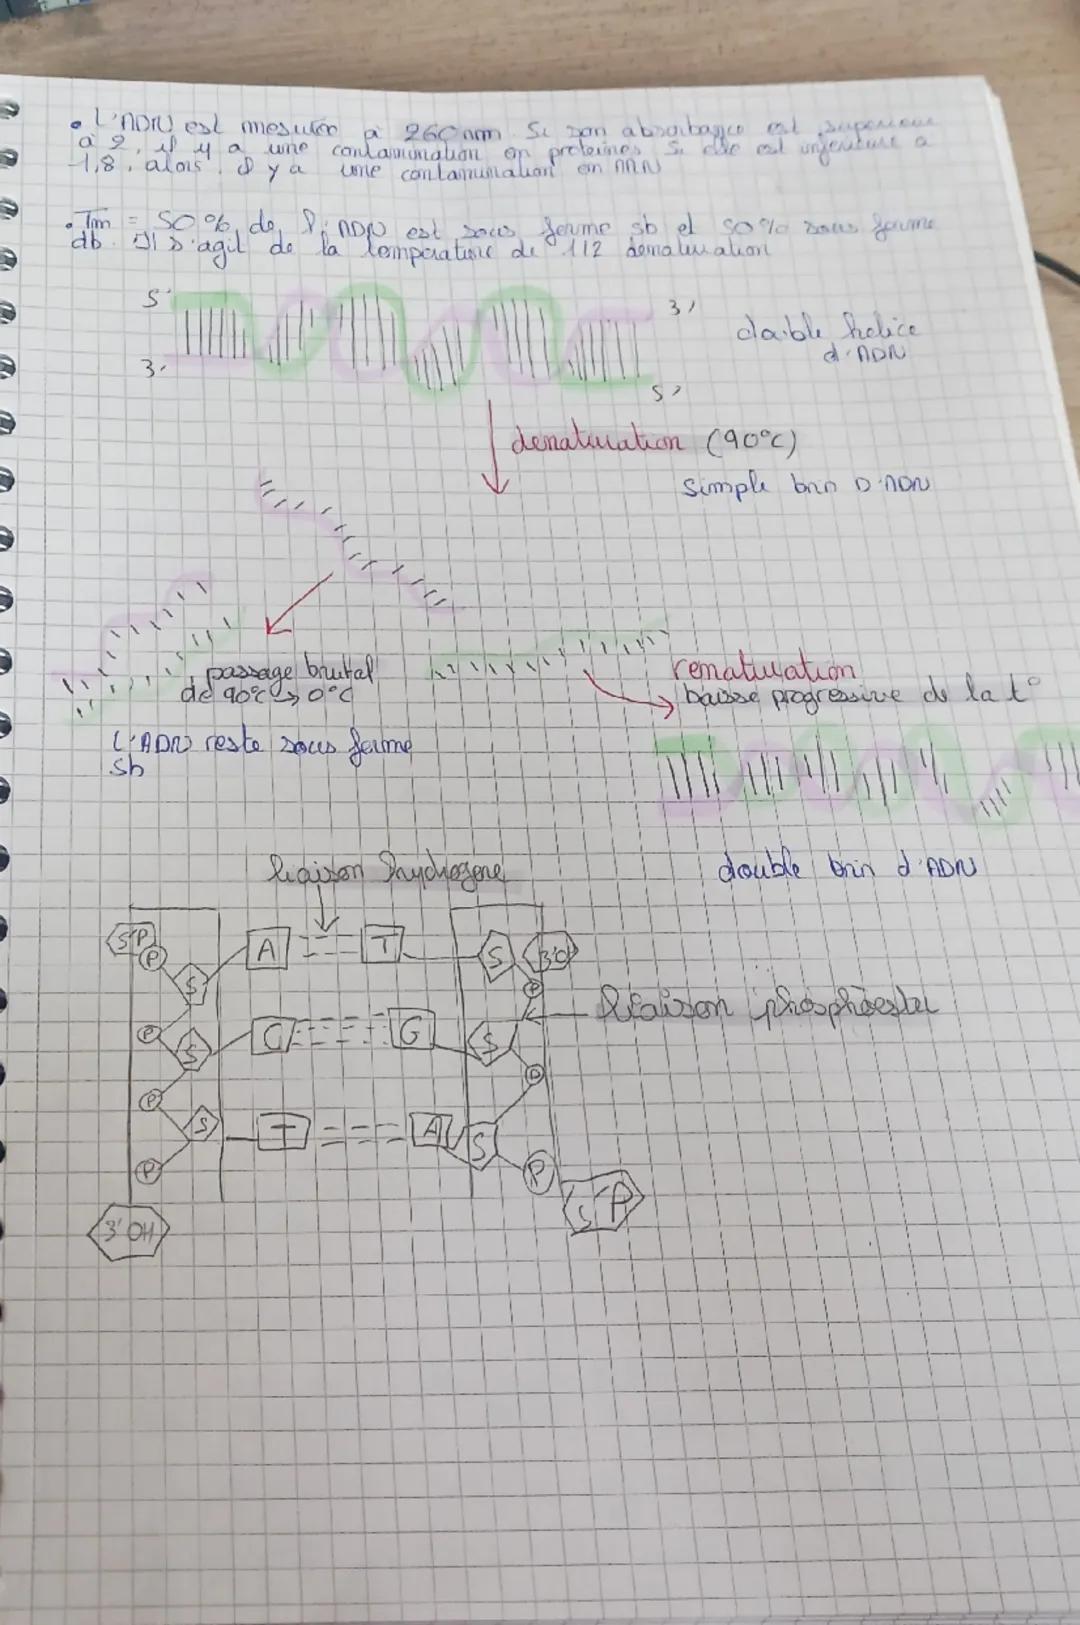 • L'ADN est mesurée à 260nm. Si son absorbance est supérieure
à 2, il y a une contamination en protéines. Si elle est inférieure à
1,8, alors il y a une contamination en ARN
• Tm = 50% de l'ADN est sous forme sb et 50% sous forme
db. Il s'agit de la température de 1/2 dénaturation
5' 3'
double hélice
d'ADN
3' 5'
dénaturation (90°C)
simple brin D'ADN
passage brutal
de 90°C → 0°C
renaturation
baisse progressive de la t°
L'ADN reste sous forme
sb
double brin d'ADN
liaison hydrogene
5'P P S A T S 3'O
P
liaison phosphoester
P S C G S
P P
S T A S
P P
5'P
3'OH